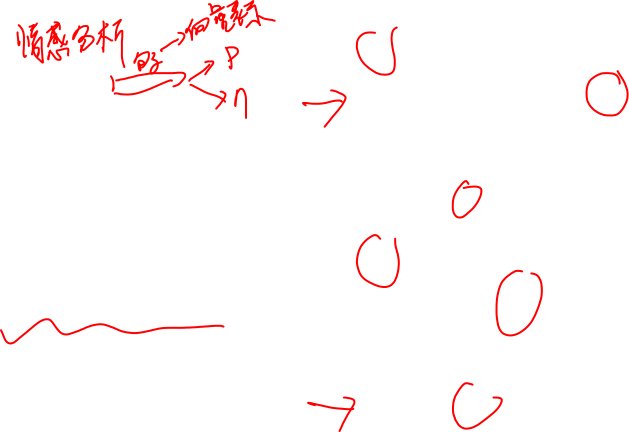 情感分析
句子→向量表示
P
n